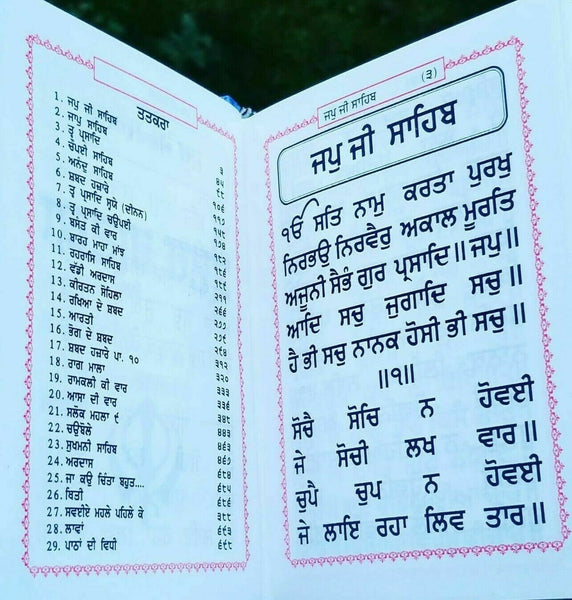 ਤਤਕਰਾ
1. ਜਪੁ ਜੀ ਸਾਹਿਬ ੩
2. ਜਾਪੁ ਸਾਹਿਬ ੪੫
3. ਤ੍ਵ ਪ੍ਰਸਾਦਿ
4. ਚੌਪਈ ਸਾਹਿਬ ੧੦੬
5. ਅਨੰਦੁ ਸਾਹਿਬ ੧੧੭
6. ਸ਼ਬਦ ਹਜ਼ਾਰੇ ੧੫੮
7. ਤ੍ਵ ਪ੍ਰਸਾਦਿ ਸ੍ਵਯੇ (ਦੀਨਨ) ੧੭੪
8. ਤ੍ਵ ਪ੍ਰਸਾਦਿ ਚਉਪਈ ੧੮੨
9. ਬਸੰਤ ਕੀ ਵਾਰ
10. ਬਾਰਹ ਮਾਹਾ ਮਾਂਝ
11. ਰਹਰਾਸਿ ਸਾਹਿਬ ੨੧੧
12. ਵੱਡੀ ਅਰਦਾਸ ੨੬੬
13. ਕੀਰਤਨ ਸੋਹਿਲਾ
14. ਰਖਿਆ ਦੇ ਸ਼ਬਦ
15. ਆਰਤੀ
16. ਭੋਗ ਦੇ ਸ਼ਬਦ ੩੧੨
17. ਸ਼ਬਦ ਹਜ਼ਾਰੇ ਪਾ. ੧੦ ੩੨੦
18. ਰਾਗ ਮਾਲਾ ੩੩੩
19. ਰਾਮਕਲੀ ਕੀ ਵਾਰ ੩੩੬
20. ਆਸਾ ਦੀ ਵਾਰ
21. ਸਲੋਕ ਮਹਲਾ ੯
22. ਚਉਬੋਲੇ
23. ਸੁਖਮਨੀ ਸਾਹਿਬ
24. ਅਰਦਾਸ
25. ਜਾ ਕਉ ਚਿੰਤਾ ਬਹੁਤ....
26. ਥਿਤੀ
27. ਸਵਈਏ ਮਹਲੇ ਪਹਿਲੇ ਕੇ
28. ਲਾਵਾਂ ੬੯੩
29. ਪਾਠਾਂ ਦੀ ਵਿਧੀ ੬੯੮
ਜਪੁ ਜੀ ਸਾਹਿਬ (੩)
ਜਪੁ ਜੀ ਸਾਹਿਬ
ੴ ਸਤਿ ਨਾਮੁ ਕਰਤਾ ਪੁਰਖੁ
ਨਿਰਭਉ ਨਿਰਵੈਰੁ ਅਕਾਲ ਮੂਰਤਿ
ਅਜੂਨੀ ਸੈਭੰ ਗੁਰ ਪ੍ਰਸਾਦਿ॥ ਜਪੁ॥
ਆਦਿ ਸਚੁ ਜੁਗਾਦਿ ਸਚੁ ॥
ਹੈ ਭੀ ਸਚੁ ਨਾਨਕ ਹੋਸੀ ਭੀ ਸਚੁ ॥
॥੧॥
ਸੋਚੈ ਸੋਚਿ ਨ ਹੋਵਈ
ਜੇ ਸੋਚੀ ਲਖ ਵਾਰ ॥
ਚੁਪੈ ਚੁਪ ਨ ਹੋਵਈ
ਜੇ ਲਾਇ ਰਹਾ ਲਿਵ ਤਾਰ ॥